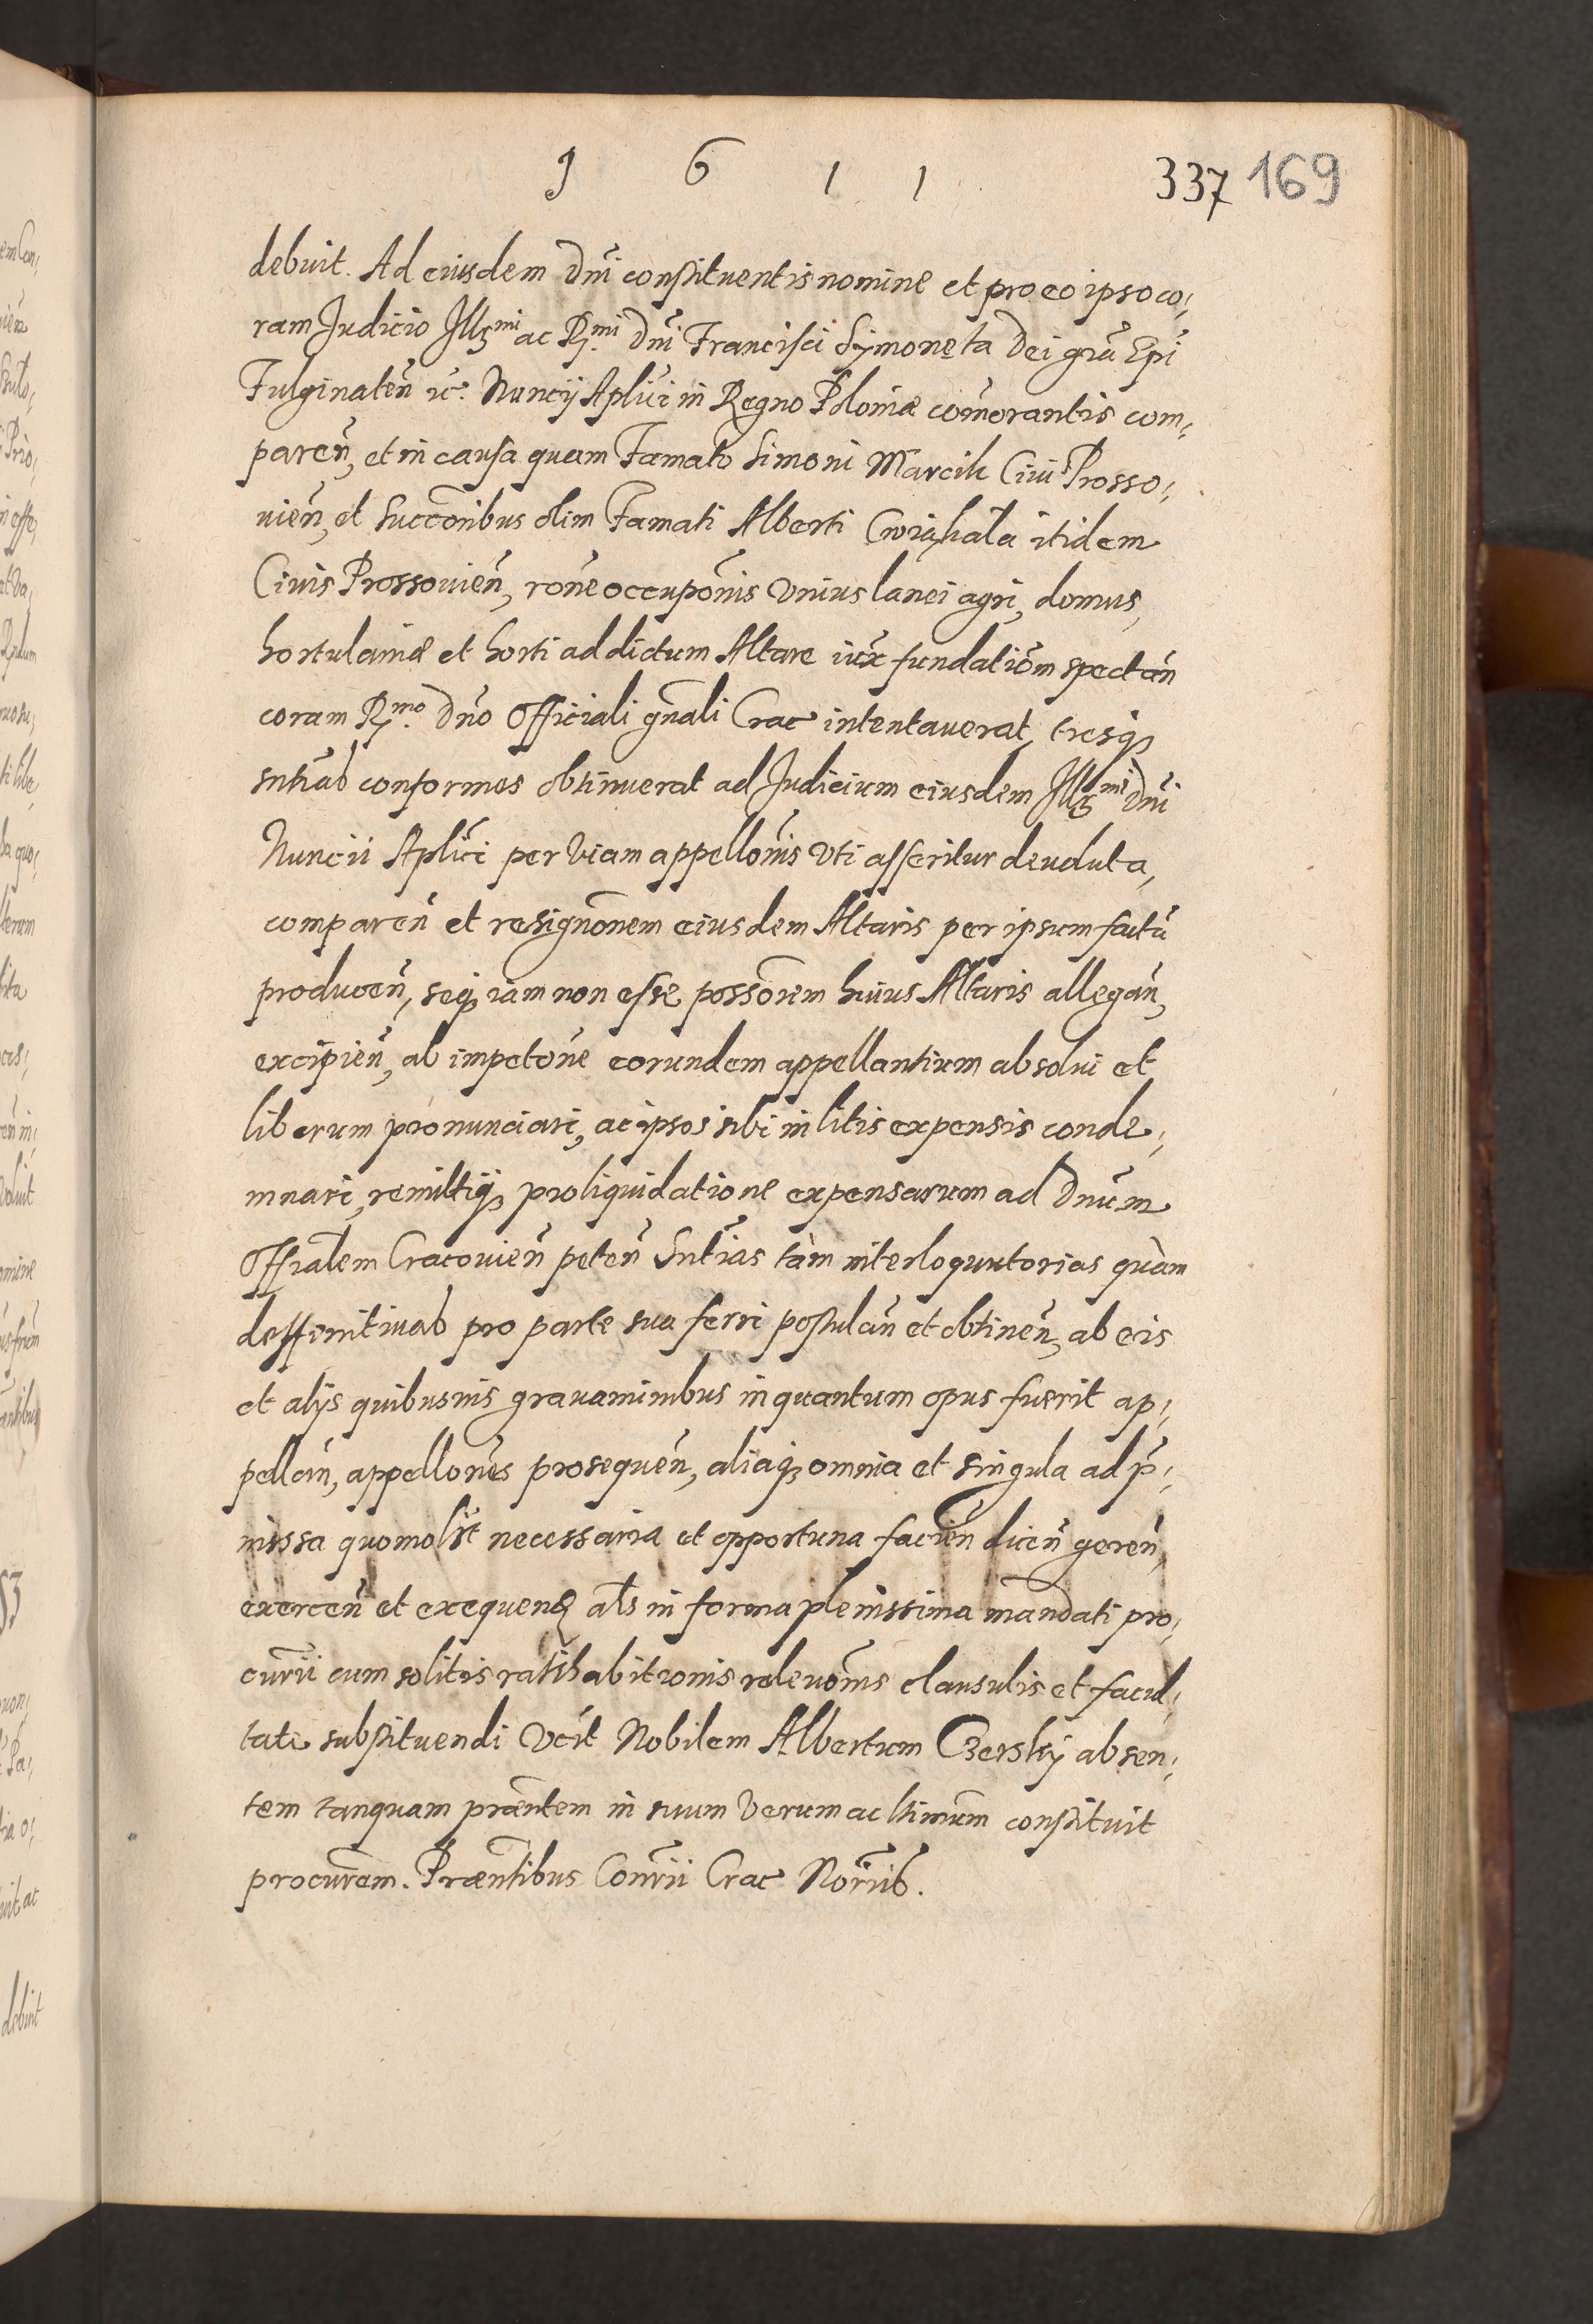 1 6 1 1
337 169
debuit. Ad eiusdem Dni constituentis nomine et pro eo ipso co¸
ram Judicio Illmi ac Rmi. Dni Francisci Symoneta Dei gra Epi
Fulginaten etc. Nuncij Aplici in Regno Poloniæ comorantis com¸
paren, et in causa quam Famato Simoni Marcik Ciui Prosso¸
uien, et succoribus olim Famati Alberti itidem
Ciuis Prossouien, rone occuponis vnius lanei agri, domus,
hortulaniæ et horti ad dictum Altare iux fundationem spectan
coram Rmo. Dno Officiali gnali Crac intentauerat, tresq;
sntias conformes obtinuerat ad Judicium eiusdem Illmi Dni
Nuncii Aplici per viam appellonis vti asseritur deuoluta,
comparen et resignonem eiusdem Altaris per ipsum factu
producen, seq; iam non esse possorem huius Altaris allegan,
excipien, ab impetone eorundem appellantium absolui et
liberum pronunciari, ac ipsos sibi in litis expensis conde¸
mnari, remittiq; pro liquidatione expensarum ad Dnum
Offialem Cracouien peten Sntias tàm interloquutorias quàm
deffinitiuas pro parte sua ferri postulan et obtinen, ab eis
et alijs quibusuis grauaminibus in quantum opus fuerit ap¸
pellan, appellones prosequen, aliaq; omnia et singula ad p¸
missa quomolit necessaria et opportuna facien dicen geren,
exercen et exequen als in forma plenissima mandati pro¸
curii cum solitis ratihabitionis releuonis clausulis et facul¸
tate substituendi vcit Nobilem Albertum Czersky absen¸
tem tanquam præntem in suum verum ac ltimum constituit
procurem. Præntibus Conrii Crac Noriis.